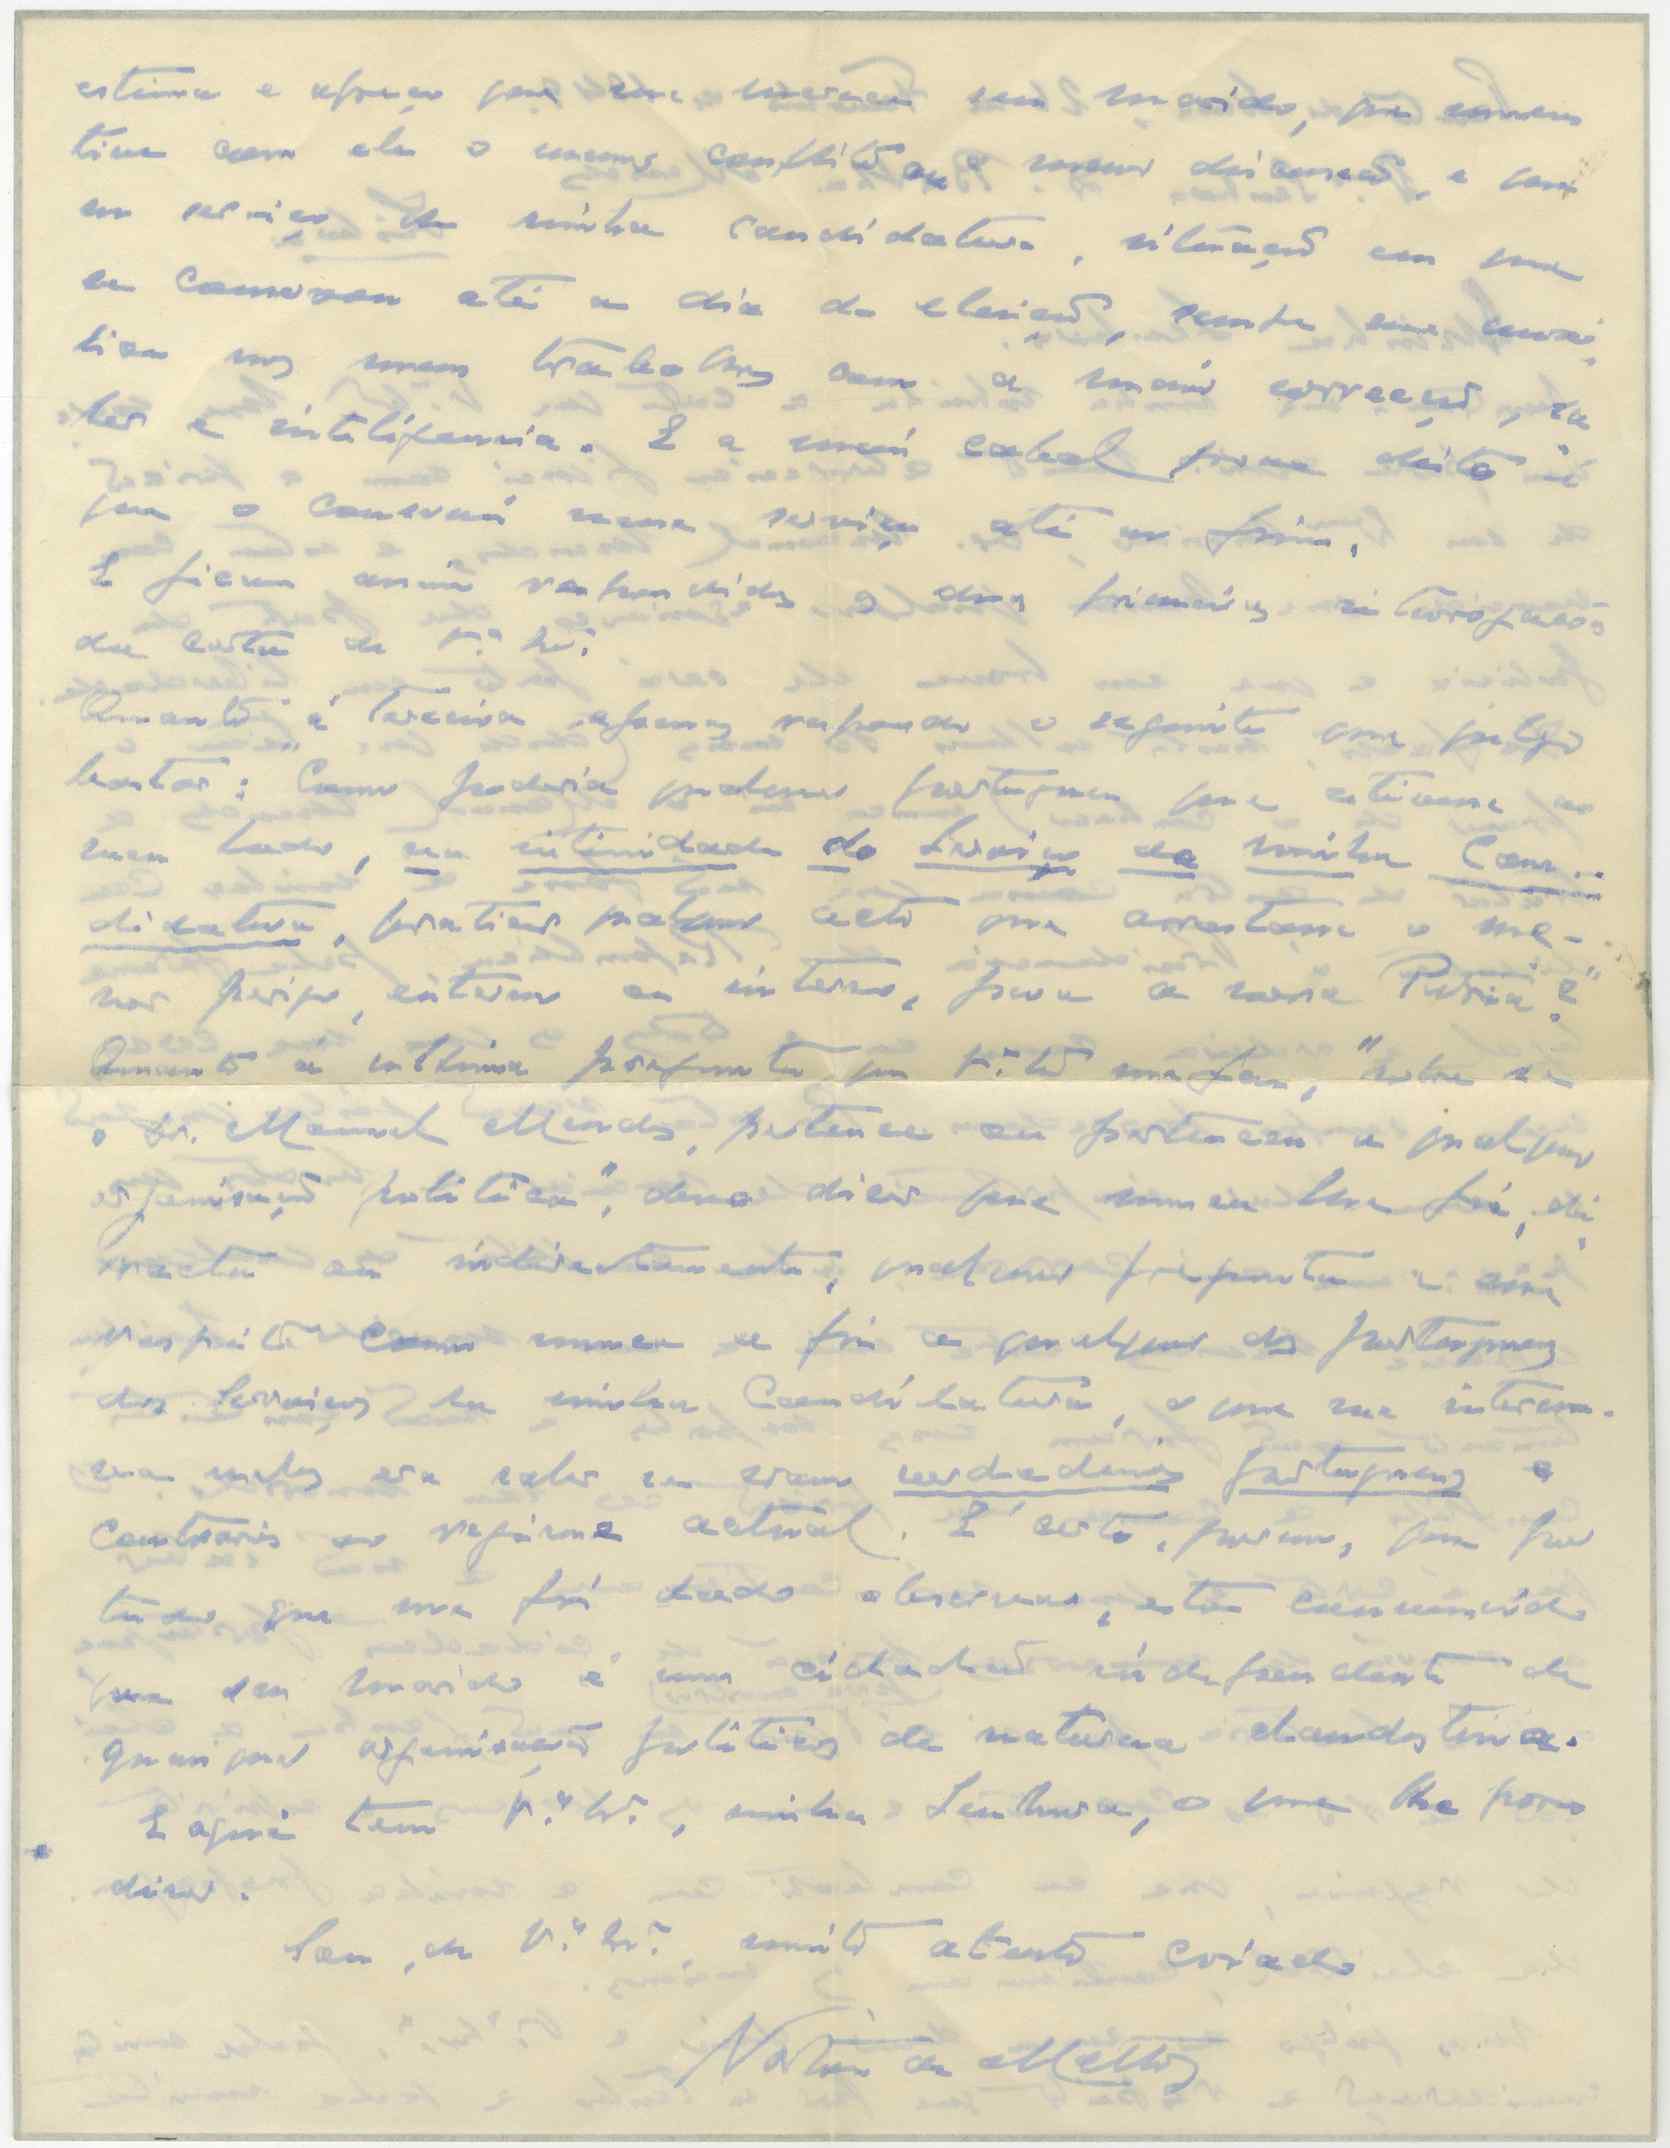 estima e apreço que me merecem seu marido, que nunca
tive com ele o menor conflito ou a menor discussão, e que
ao serviço da minha candidatura, situação em que
se conservou até ao dia da eleição, sempre me auxi-
liou nos meus trabalhos com a maior correcção, sa-
ber e inteligencia. E a mais cabal prova disto é
que o conservei nesse serviço até ao fim.
E ficam assim respondidas as duas primeiras interrogações
da carta de V.ª Ex.ª
Quanto á terceira apenas respondo o seguinte que julgo
bastar: Como poderia qualquer português que estivesse ao
meu lado, na intimidade do Serviço da minha Can-
didatura, praticar qualquer acto que arrastasse o me-
nor perigo, externo ou interno, para a nossa Pátria?"
Quanto á ultima pergunta que V.ª Ex.ª me faz, "sobre se
o Sr. Manuel Mendes, pertence ou pertenceu a qualquer
organisação politica", devo dizer que nunca lhe fiz, di-
recta ou indirectamente, qualquer pregunta a esse
respeito como nunca a fiz a qualquer dos portugueses
dos Serviços da minha Candidatura, o que me interessa-
va nelles era saber se eram verdadeiros portugueses e
contrarios ao regime actual. É certo, porém, que por
tudo que me foi dado observar, estou convencido
que seu marido é um cidadão independente de
quaisquer organisações politicas de natureza clandestina.
E aqui tem V.ª Ex.ª, minha Senhora, o que lhe posso
dizer.
Sou, de V.ª Ex.ª, muito atento criado
Norton de Mattos